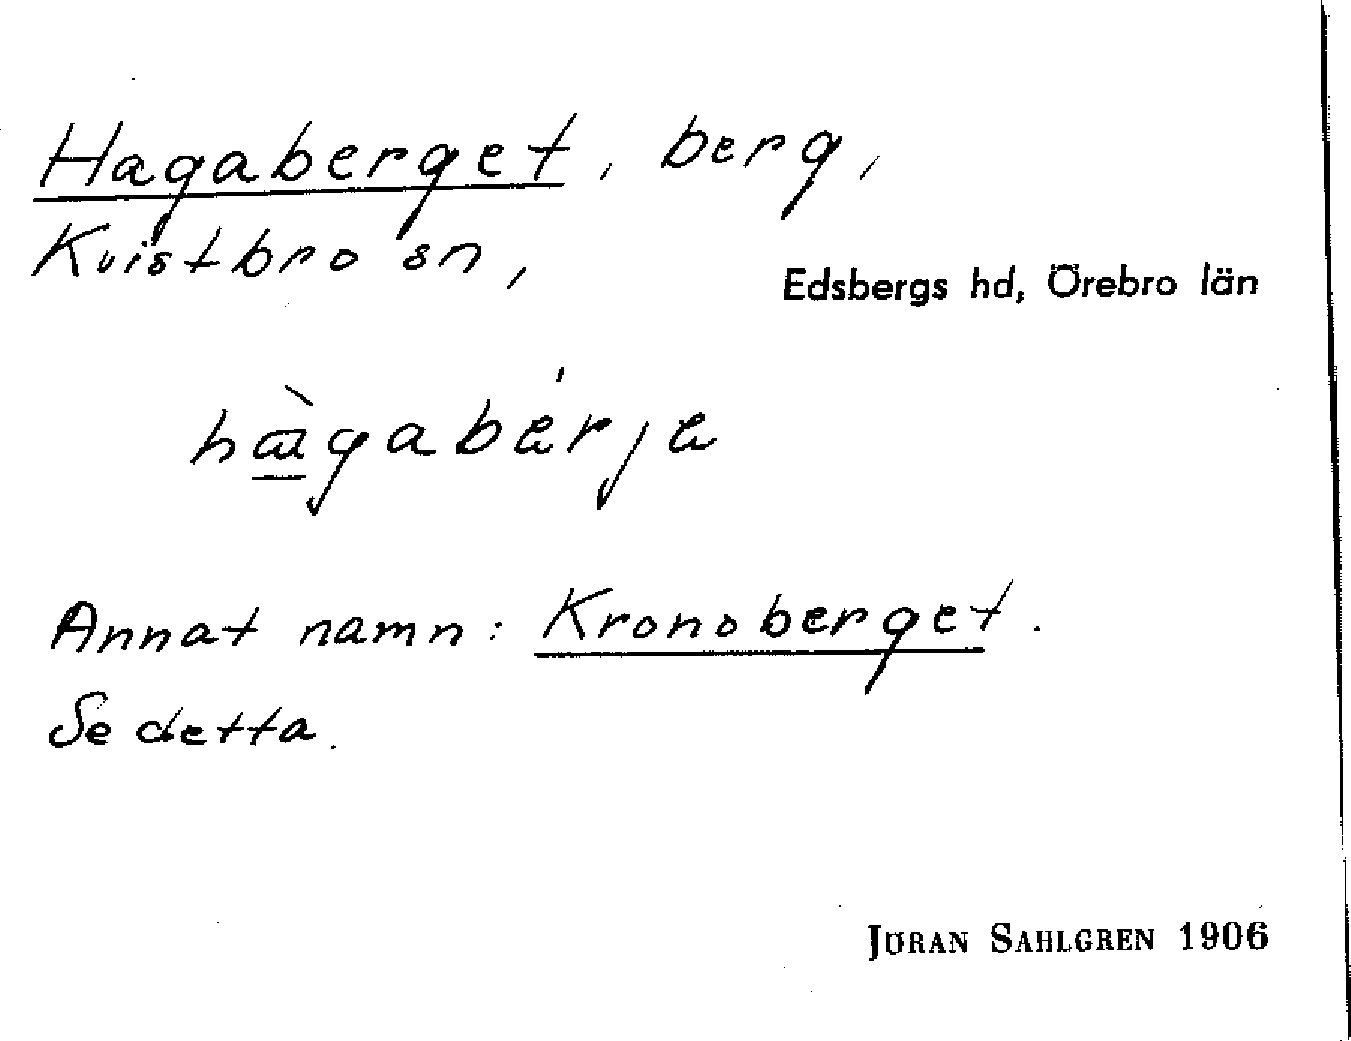 Hagaberget, berg,
Kvistbro sn,
Edsbergs hd, Örebro län
hàgabérje
Annat namn: Kronoberget.
Se detta.
JÖRAN SAHLGREN 1906